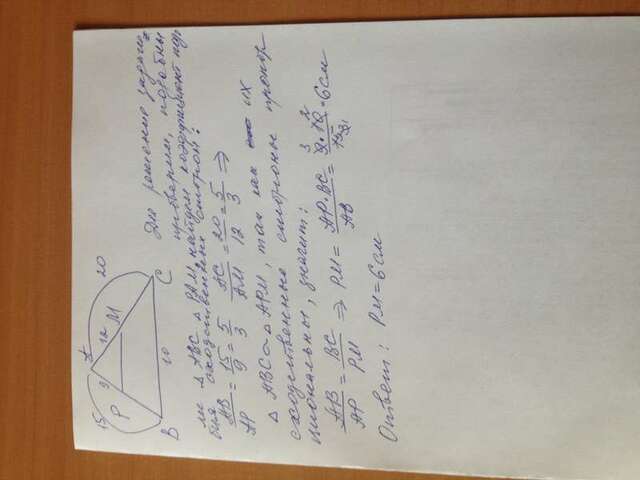 15 9 A 12 20
P M
B 10 C
Для решения задачи
проверим, подобны
ли △ ABC △ PAM, найдем коэффициент подо
бия сходственных сторон:
AB/AP = 15/9 = 5/3 AC/AM = 20/12 = 5/3 ⇒
△ ABC ~ △ APM, так как их
сходственные стороны пропор
циональны, значит:
AB/AP = BC/PM ⇒ PM = AP·BC/AB = 9·10/15 = 6 см
Ответ: PM = 6 см